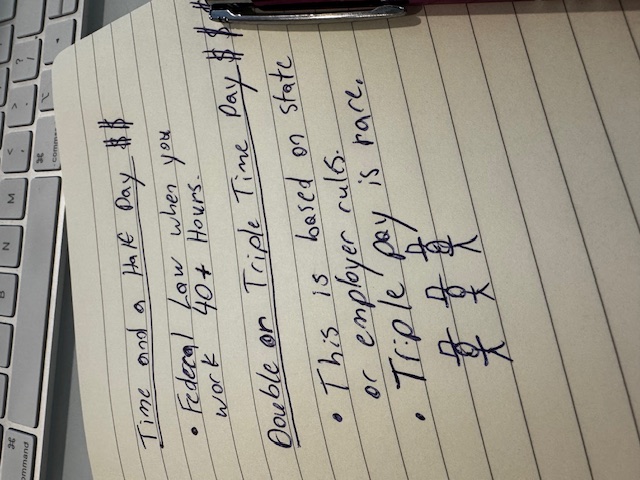 Time and a Half Pay $$
• Federal Law when you
work 40+ Hours.
Double or Triple Time Pay $$$
• This is based on state
or employer rules.
• Triple pay is rare.
command
command
Z
M
B
<
,
>
.
?
⌘
⌘
⌥